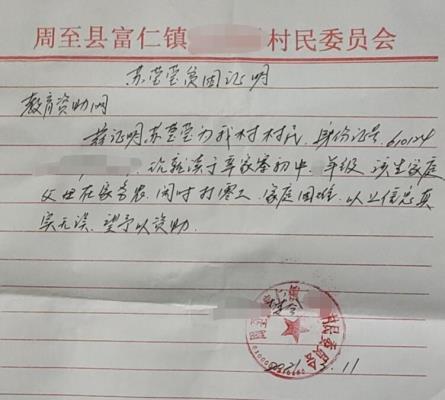 周至县富仁镇 村民委员会
苏莹莹贫困证明
教育资助网
兹证明苏莹莹为我村村民 身份证号 610124
就读于辛家寨初中 年级 该生家庭
父母在家务农 闲时打零工 家庭困难 以上信息真
实无误 望予以资助
2021 11
村民委员会